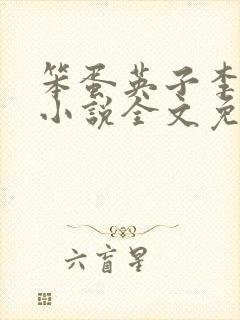 笨蛋英子
小说全文免
六盲星